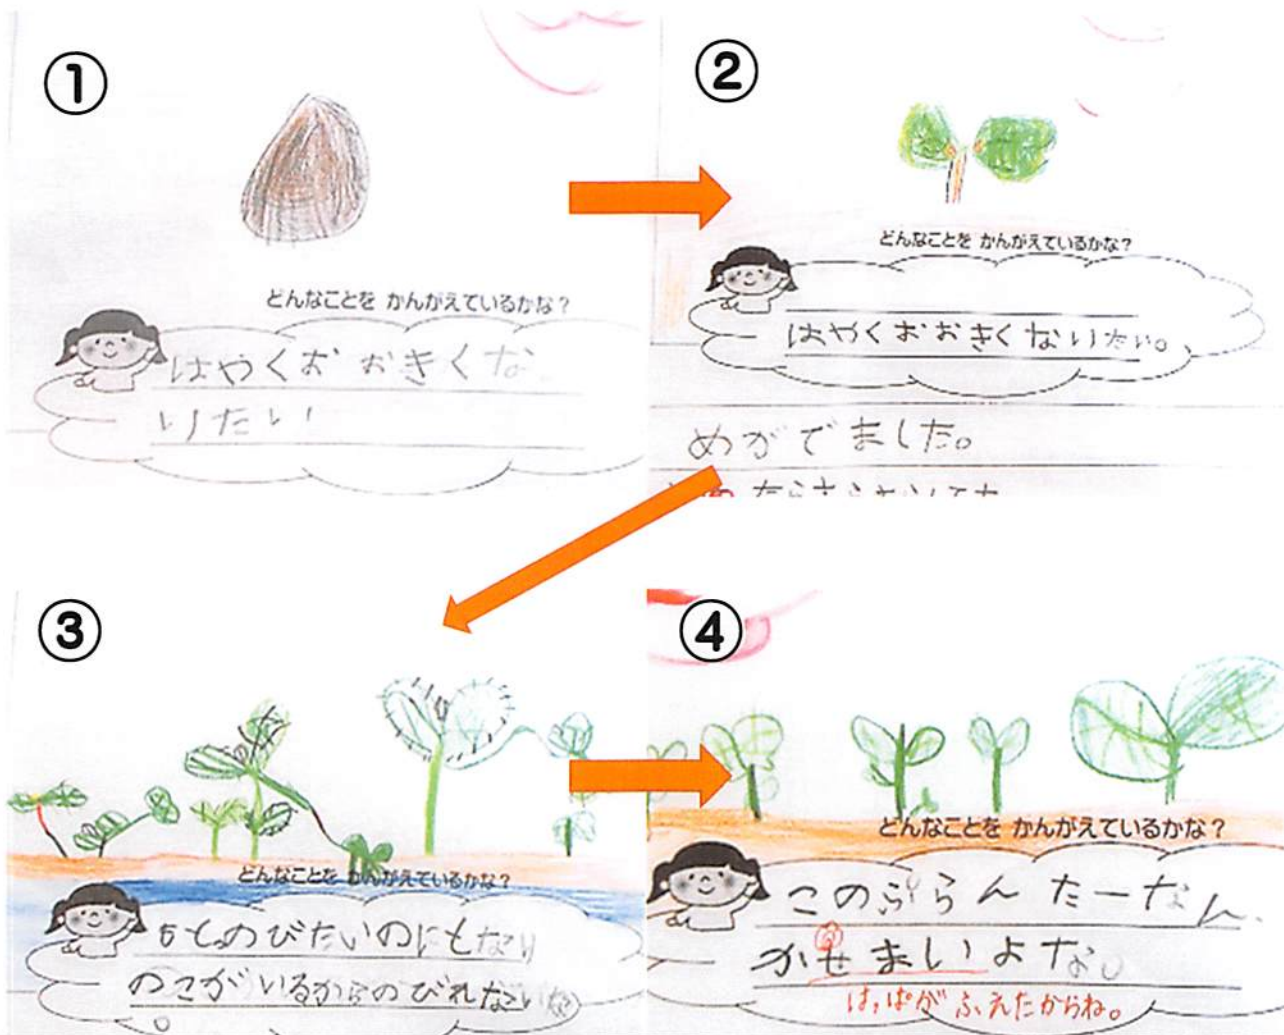 ①
どんなことを かんがえているかな?
はやくお おきくな
りたい
②
どんなことを かんがえているかな?
はやくおおきくなりたい。
めがでました。
③
どんなことを かんがえているかな?
のびたいのにとなり
のこがいるからのびれないな
。
④
どんなことを かんがえているかな?
このぷらんたーなん
かせまいよな。
はっぱがふえたからね。